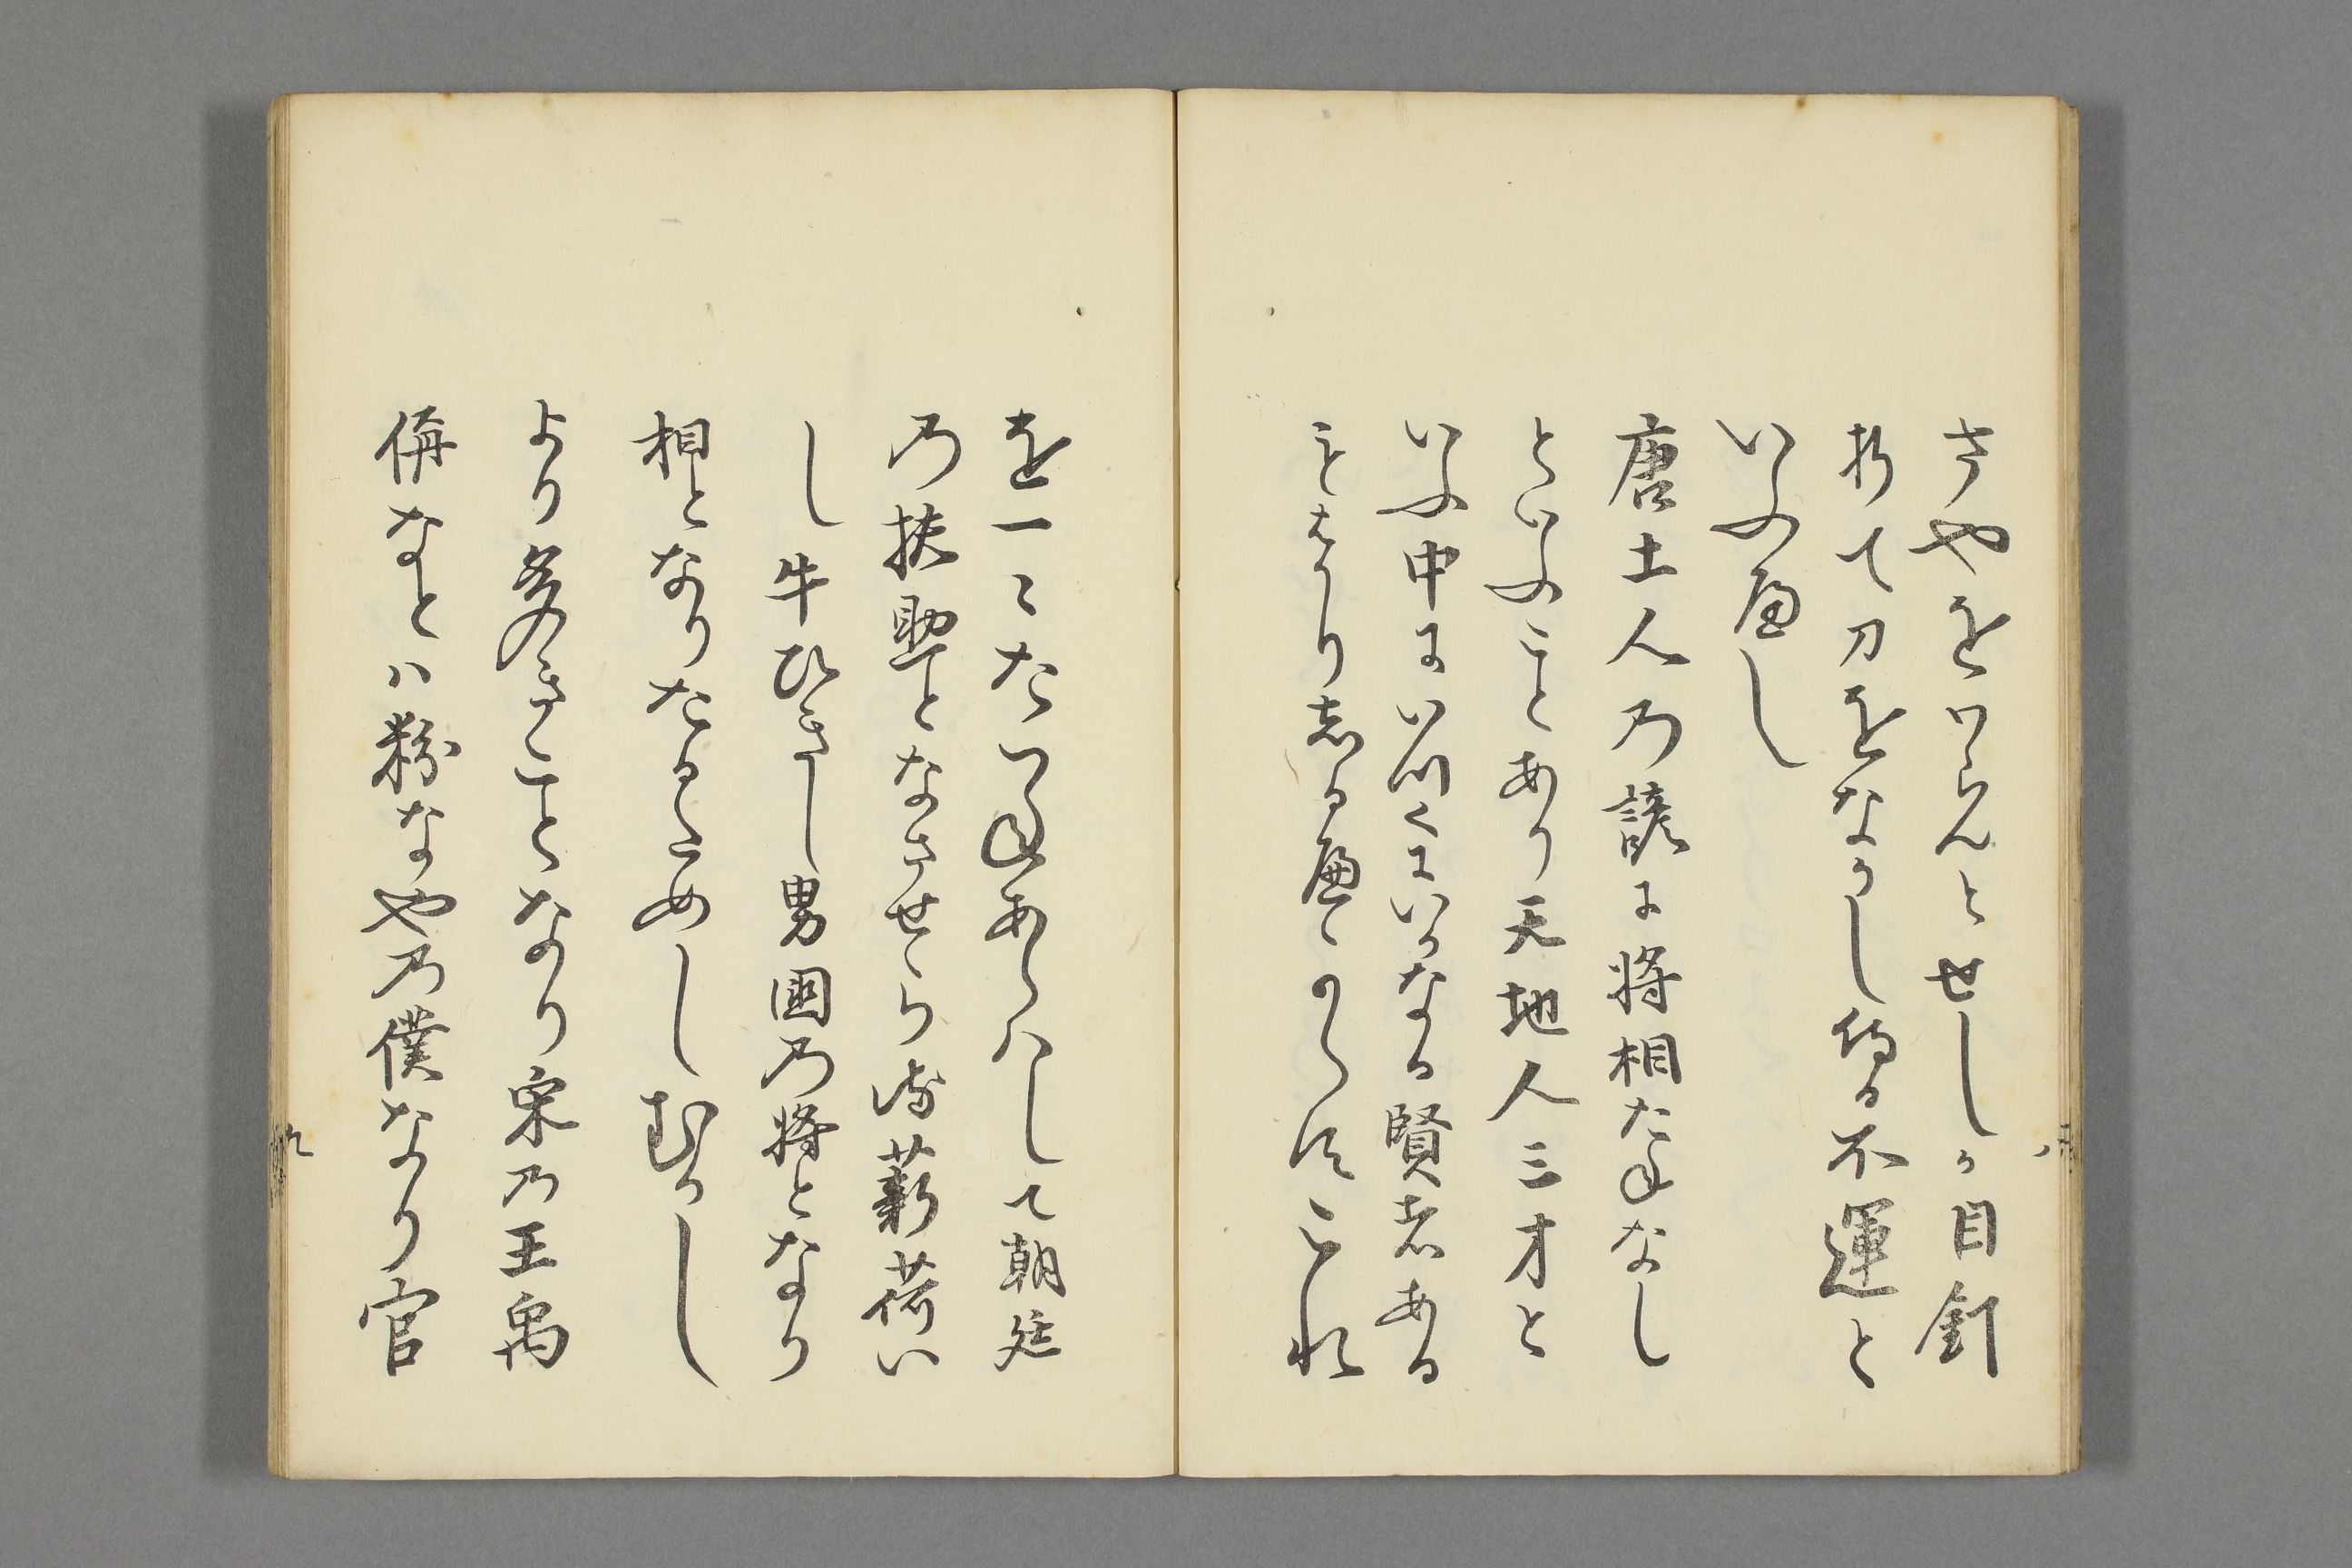 さやをわらんとせしか目釘
折て刀をなかし侍る不運と
いふへし
唐土人乃諺に将相たねなし
といふことあり天地人三才と
いふ中にいつくにいかなる賢者ある
ことはかり志る便へからすこれ
を一〻たつねあらハして朝廷
乃扶助となさせらる薪荷い
し牛ひきし男国乃将となり
相となりたるためしむかし
より多きことなり宋乃王禹
偁なとハ粉なや乃僕なり官